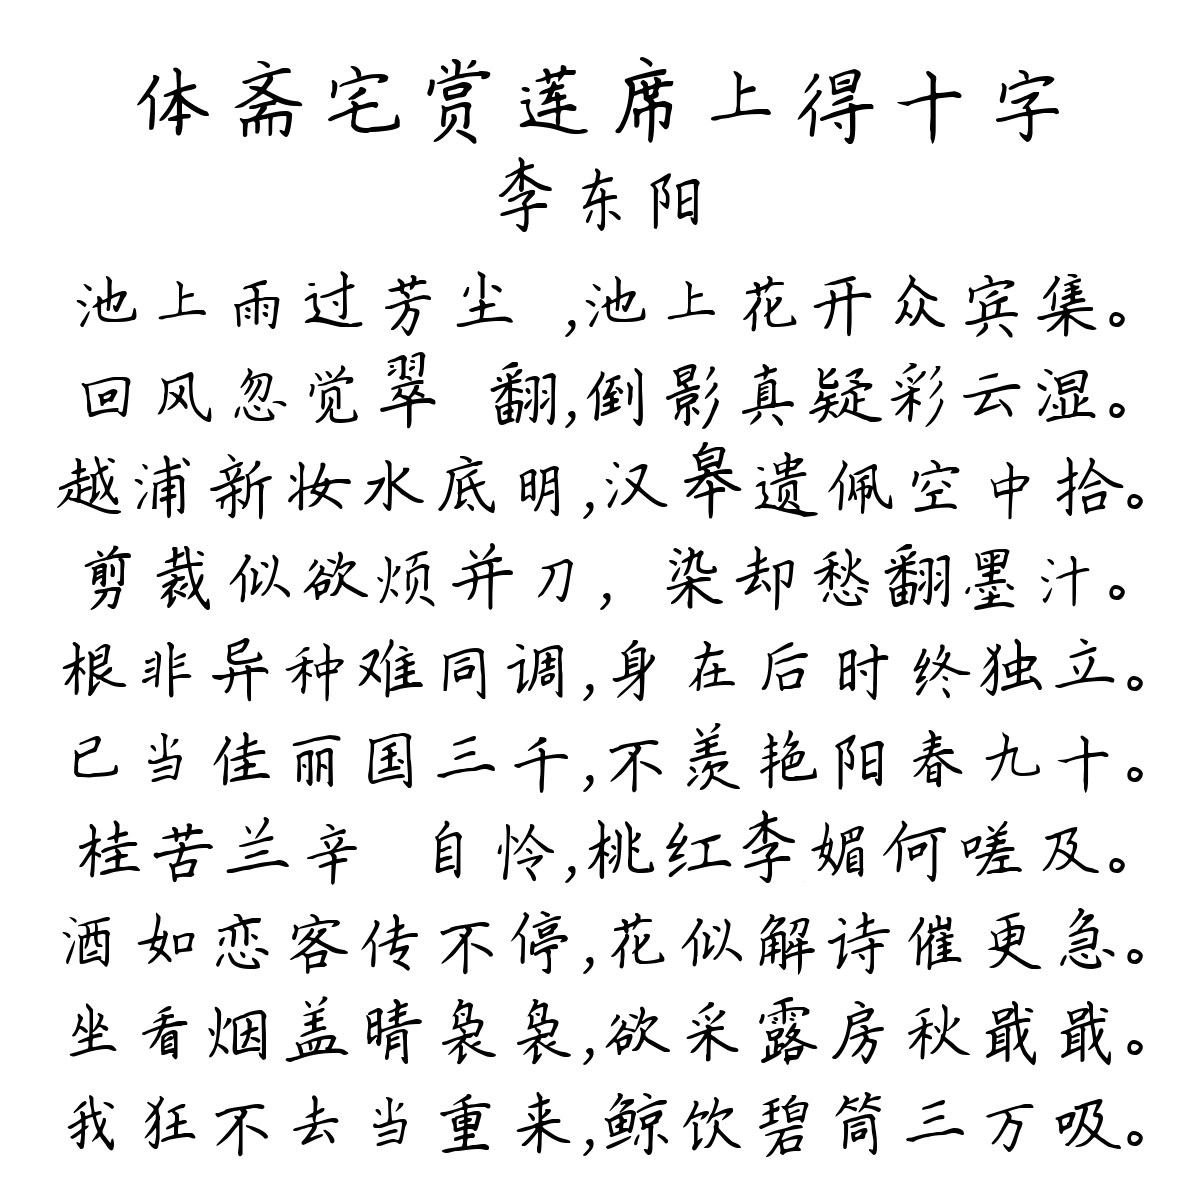 体斋宅赏莲席上得十字
李东阳
池上雨过芳尘 ,池上花开众宾集。
回风忽觉翠 翻,倒影真疑彩云湿。
越浦新妆水底明,汉皋遗佩空中拾。
剪裁似欲烦并刀,染却愁翻墨汁。
根非异种难同调,身在后时终独立。
已当佳丽国三千,不羡艳阳春九十。
桂苦兰辛 自怜,桃红李媚何嗟及。
酒如恋客传不停,花似解诗催更急。
坐看烟盖晴袅袅,欲采露房秋戢戢。
我狂不去当重来,鲸饮碧筒三万吸。